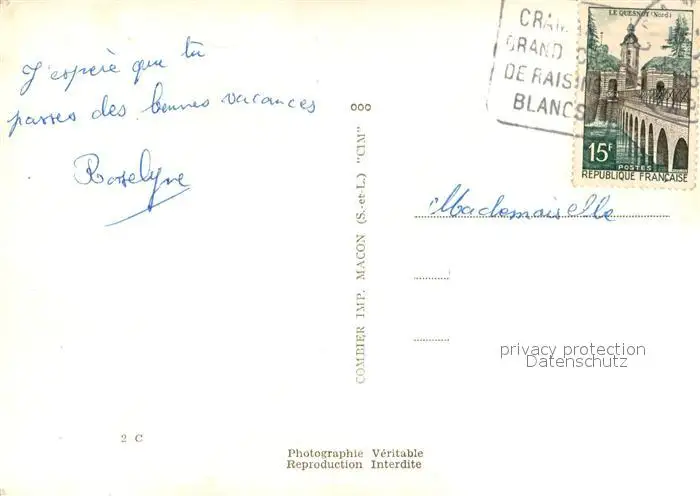 CRAM
GRAND
DE RAISINS
BLANCS
LE QUESNOY (Nord)
15F
POSTES
REPUBLIQUE FRANÇAISE
J'espère que tu
passes des bonnes vacances
Roselyne
ooo
COMBIER IMP. MACON (S.-et-L.) "CIM"
Mademoiselle
privacy protection
Datenschutz
2 C
Photographie Véritable
Reproduction Interdite